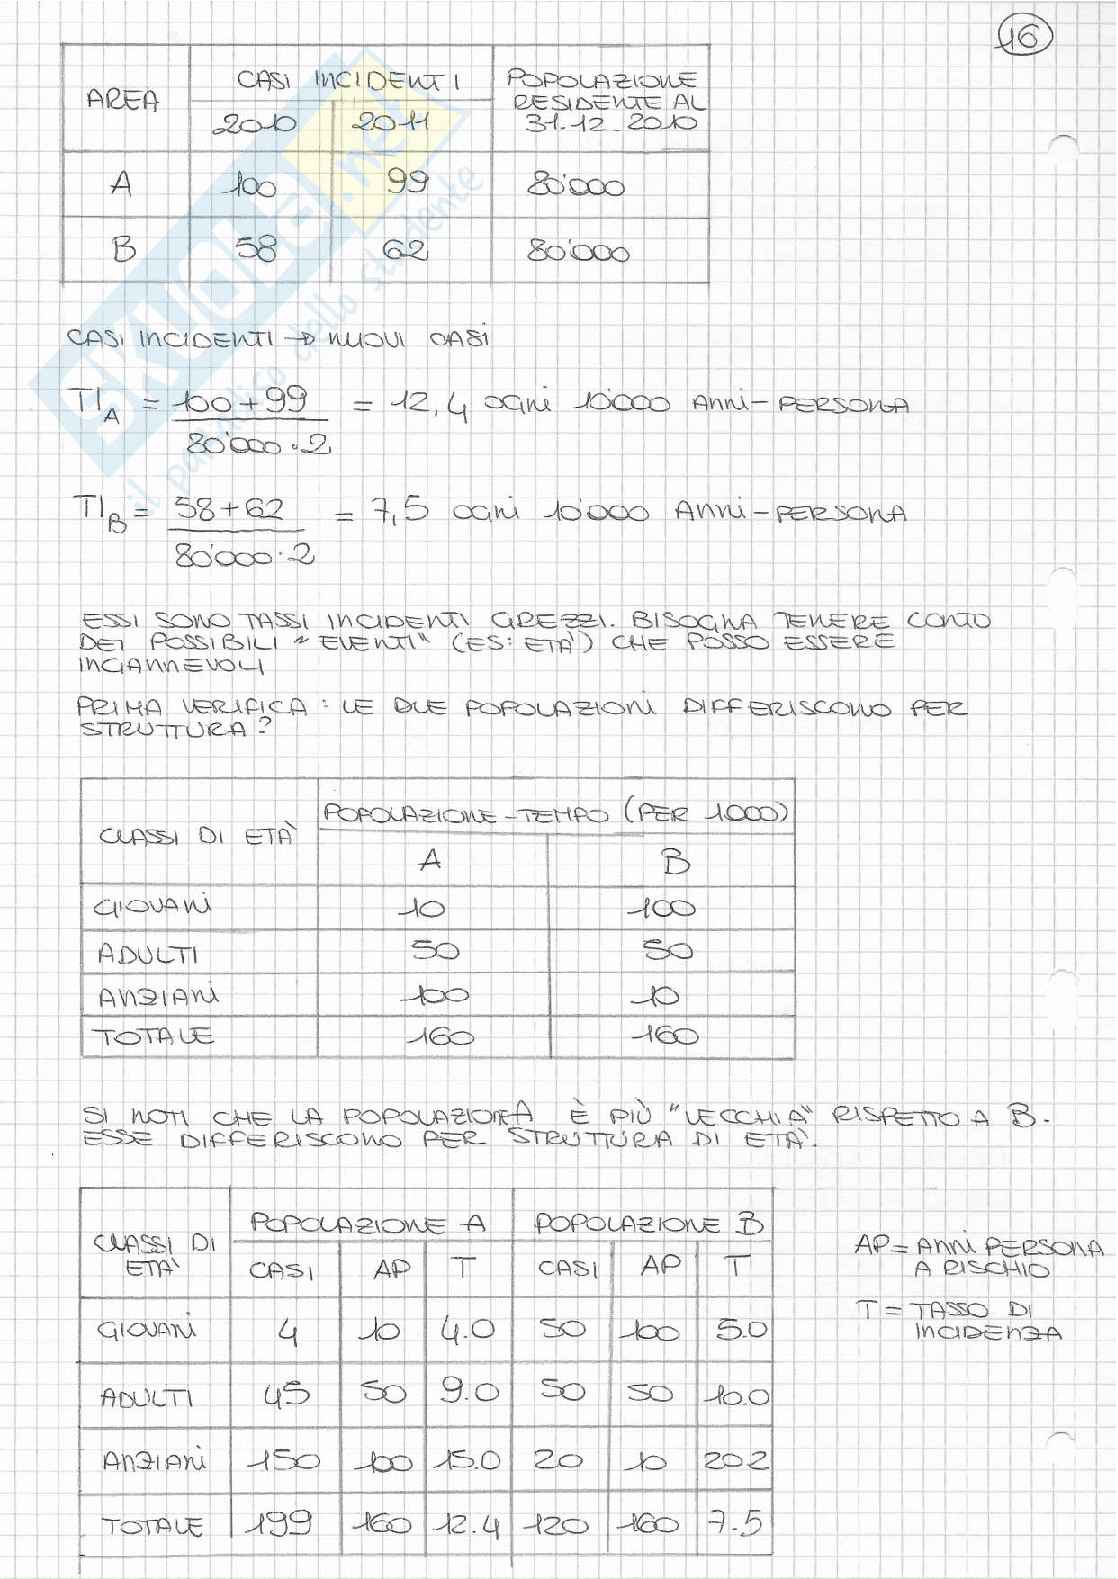 16
AREA | CASI INCIDENTI | POPOLAZIONE RESIDENTE AL 31.12.2010
2010 | 2011
A | 100 | 99 | 80'000
B | 58 | 62 | 80'000
CASI INCIDENTI → NUOVI CASI
TI_A = 100+99 / 80'000·2 = 12,4 OGNI 10'000 ANNI-PERSONA
TI_B = 58+62 / 80'000·2 = 7,5 OGNI 10'000 ANNI-PERSONA
ESSI SONO TASSI INCIDENTI GREZZI. BISOGNA TENERE CONTO
DEI POSSIBILI "EVENTI" (ES: ETÀ) CHE POSSO ESSERE
INGANNEVOLI
PRIMA VERIFICA: LE DUE POPOLAZIONI DIFFERISCONO PER
STRUTTURA?
CLASSI DI ETÀ | POPOLAZIONE-TEMPO (PER 1000)
A | B
GIOVANI | 10 | 100
ADULTI | 50 | 50
ANZIANI | 100 | 10
TOTALE | 160 | 160
SI NOTI CHE LA POPOLAZIONA È PIÙ "VECCHIA" RISPETTO A B.
ESSE DIFFERISCONO PER STRUTTURA DI ETÀ.
CLASSI DI ETÀ | POPOLAZIONE A | POPOLAZIONE B
CASI | AP | T | CASI | AP | T
GIOVANI | 4 | 10 | 4.0 | 50 | 100 | 5.0
ADULTI | 45 | 50 | 9.0 | 50 | 50 | 10.0
ANZIANI | 150 | 100 | 15.0 | 20 | 10 | 20.2
TOTALE | 199 | 160 | 12.4 | 120 | 160 | 7.5
AP = ANNI PERSONA
A RISCHIO
T = TASSO DI
INCIDENZA
SKUOLA.net
il paradiso dello studente